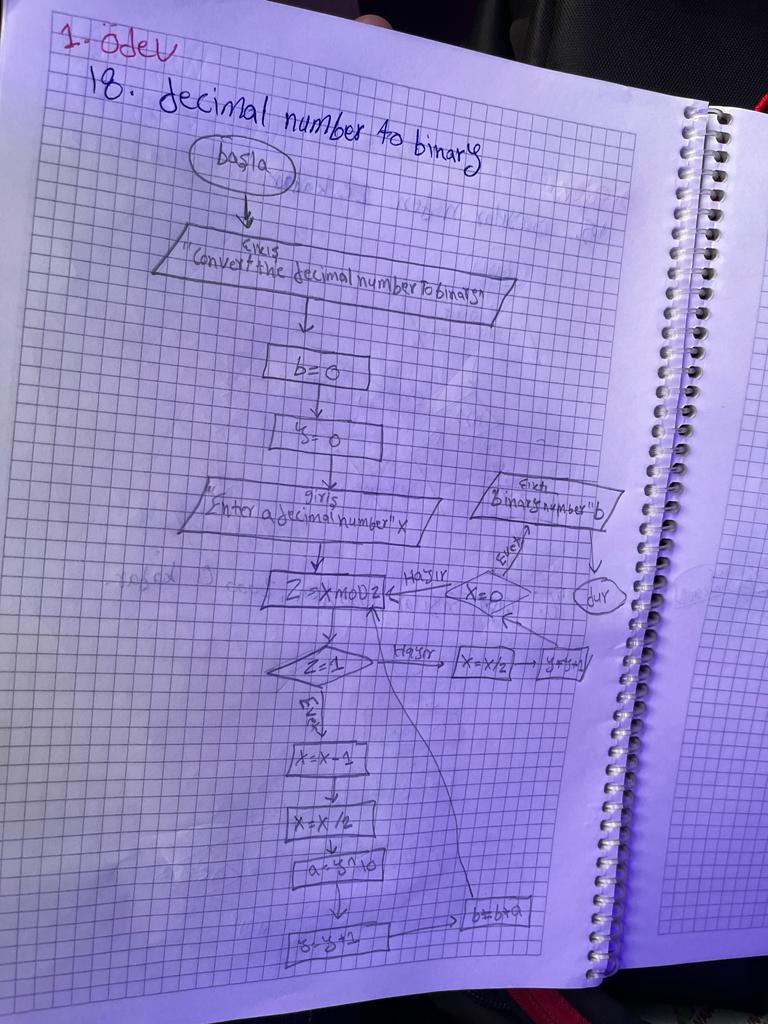 1. ödev
18. decimal number to binary
başla
Çıkış
"Convert the decimal number to binary"
b=0
y=0
giriş
"Enter a decimal number" x
"binary number" b
Z=XMOD2
Hayır
X=0
Evet
dur
Z=1
Hayır
X=X/2
y=y+1
Evet
X=X-1
X=X/2
a=y^10
y=y+1
b=b+a